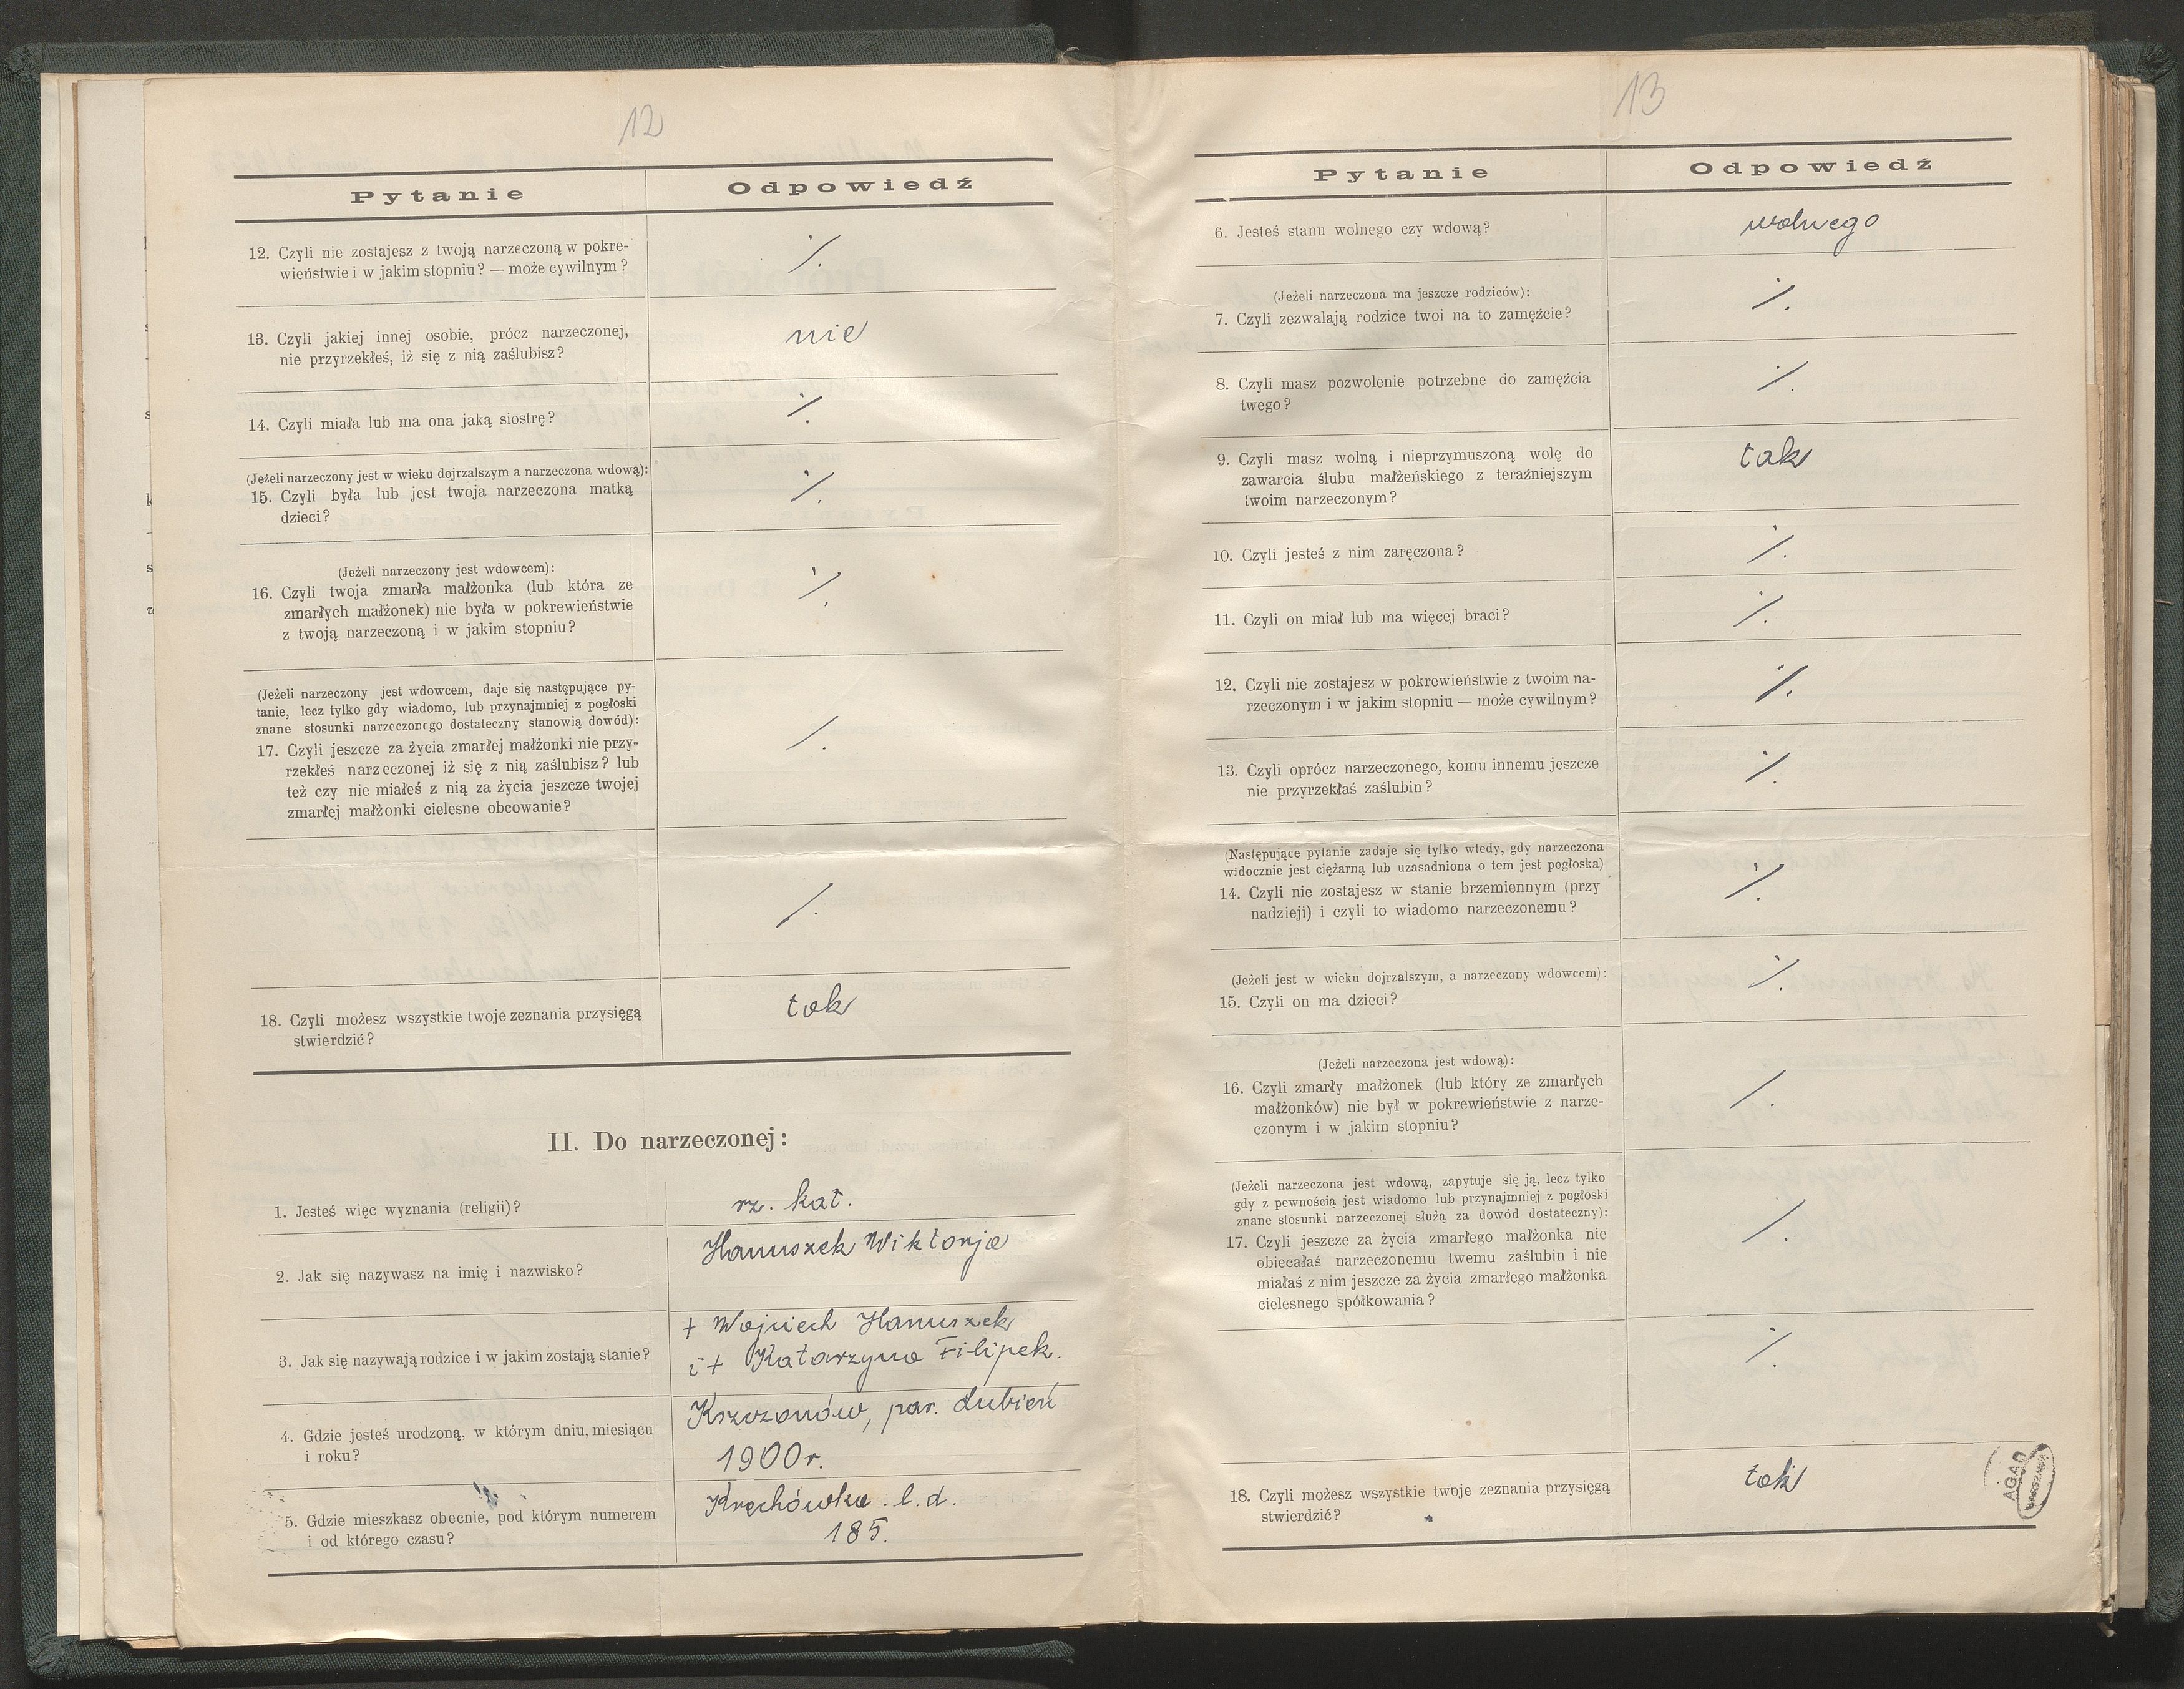 12
Pytanie
Odpowiedź
12. Czyli nie zostajesz z twoją narzeczoną w pokre-
wieństwie i w jakim stopniu? — może cywilnym?
·/.
13. Czyli jakiej innej osobie, prócz narzeczonej,
nie przyrzekłeś, iż się z nią zaślubisz?
nie
14. Czyli miała lub ma ona jaką siostrę?
·/.
(Jeżeli narzeczony jest w wieku dojrzalszym a narzeczona wdową):
15. Czyli była lub jest twoja narzeczona matką
dzieci?
·/.
(Jeżeli narzeczony jest wdowcem):
16. Czyli twoja zmarła małżonka (lub która ze
zmarłych małżonek) nie była w pokrewieństwie
z twoją narzeczoną i w jakim stopniu?
·/.
(Jeżeli narzeczony jest wdowcem, daje się następujące py-
tanie, lecz tylko gdy wiadomo, lub przynajmniej z pogłoski
znane stosunki narzeczonego dostateczny stanowią dowód):
17. Czyli jeszcze za życia zmarłej małżonki nie przy-
rzekłeś narzeczonej iż się z nią zaślubisz? lub
też czy nie miałeś z nią za życia jeszcze twojej
zmarłej małżonki cielesne obcowanie?
/.
/.
18. Czyli możesz wszystkie twoje zeznania przysięgą
stwierdzić?
tak
II. Do narzeczonej:
1. Jesteś więc wyznania (religii)?
rz. kat.
2. Jak się nazywasz na imię i nazwisko?
Hanuszek Wiktorja
3. Jak się nazywają rodzice i w jakim zostają stanie?
+ Wojciech Hanuszek
i + Katarzyna Filipek.
4. Gdzie jesteś urodzoną, w którym dniu, miesiącu
i roku?
Krzczonów, par. Lubień
1900 r.
5. Gdzie mieszkasz obecnie, pod którym numerem
i od którego czasu?
Kręchówka . l. d.
185.
13
Pytanie
Odpowiedź
6. Jesteś stanu wolnego czy wdową?
wolnego
(Jeżeli narzeczona ma jeszcze rodziców):
7. Czyli zezwalają rodzice twoi na to zamęźcie?
·/.
8. Czyli masz pozwolenie potrzebne do zamęźcia
twego?
·/.
9. Czyli masz wolną i nieprzymuszoną wolę do
zawarcia ślubu małżeńskiego z teraźniejszym
twoim narzeczonym?
tak
10. Czyli jesteś z nim zaręczona?
·/.
11. Czyli on miał lub ma więcej braci?
·/.
12. Czyli nie zostajesz w pokrewieństwie z twoim na-
rzeczonym i w jakim stopniu — może cywilnym?
·/.
13. Czyli oprócz narzeczonego, komu innemu jeszcze
nie przyrzekłaś zaślubin?
·/.
(Następujące pytanie zadaje się tylko wtedy, gdy narzeczona
widocznie jest ciężarną lub uzasadniona o tem jest pogłoska)
14. Czyli nie zostajesz w stanie brzemiennym (przy
nadzieji) i czyli to wiadomo narzeczonemu?
·/.
(Jeżeli jest w wieku dojrzalszym, a narzeczony wdowcem):
15. Czyli on ma dzieci?
·/.
(Jeżeli narzeczona jest wdową):
16. Czyli zmarły małżonek (lub który ze zmarłych
małżonków) nie był w pokrewieństwie z narze-
czonym i w jakim stopniu?
/.
(Jeżeli narzeczona jest wdową, zapytuje się ją, lecz tylko
gdy z pewnością jest wiadomo lub przynajmniej z pogłoski
znane stosunki narzeczonej służą za dowód dostateczny):
17. Czyli jeszcze za życia zmarłego małżonka nie
obiecałaś narzeczonemu twemu zaślubin i nie
miałaś z nim jeszcze za życia zmarłego małżonka
cielesnego spółkowania?
/.
·/.
18. Czyli możesz wszystkie twoje zeznania przysięgą
stwierdzić?
tak
AGAD